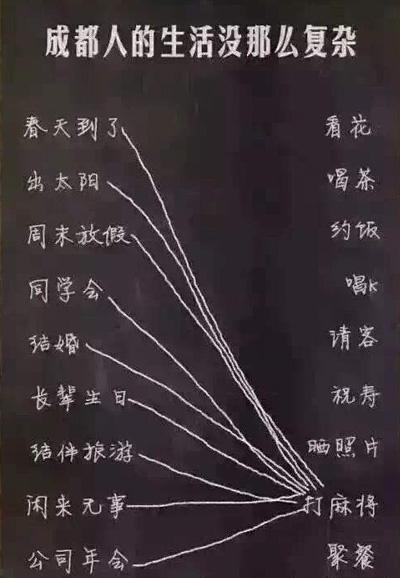 成都人的生活没那么复杂
春天到了 看花
出太阳 喝茶
周末放假 约饭
同学会 唱K
结婚 请客
长辈生日 祝寿
结伴旅游 晒照片
闲来无事 打麻将
公司年会 聚餐